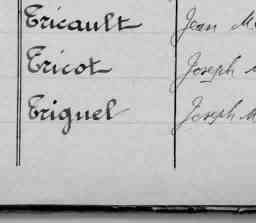 Tricault Jean M
Tricot Joseph
Triguel Joseph M